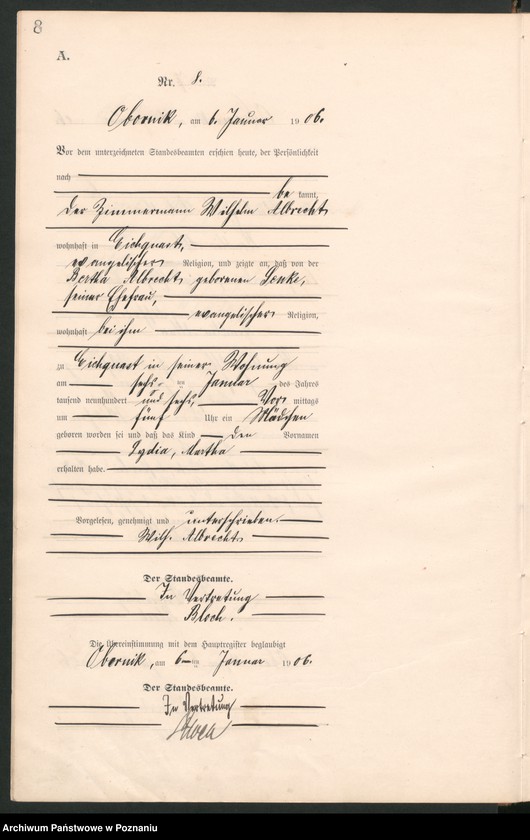 8
A.
Nr. 8.
Obornik, am 6. Januar 1906.
Vor dem unterzeichneten Standesbeamten erschien heute, der Persönlichkeit
nach
be kannt,
der Zimmermann Wilhelm Albrecht
wohnhaft in Eichquast,
evangelischer Religion, und zeigte an, daß von der
Bertha Albrecht geborenen Lenke,
seiner Ehefrau,
evangelischer Religion,
wohnhaft bei ihm
zu Eichquast in seiner Wohnung
am sechs ten Januar des Jahres
tausend neunhundert und sechs, Vor mittags
um fünf Uhr ein Mädchen
geboren worden sei und daß das Kind den Vornamen
Lydia, Martha
erhalten habe.
Vorgelesen, genehmigt und unterschrieben.
Wilh. Albrecht
Der Standesbeamte.
In Vertretung
Bloch.
Die Übereinstimmung mit dem Hauptregister beglaubigt
Obornik, am 6 ten Januar 1906.
Der Standesbeamte.
In Vertretung
Bloch
Archiwum Państwowe w Poznaniu